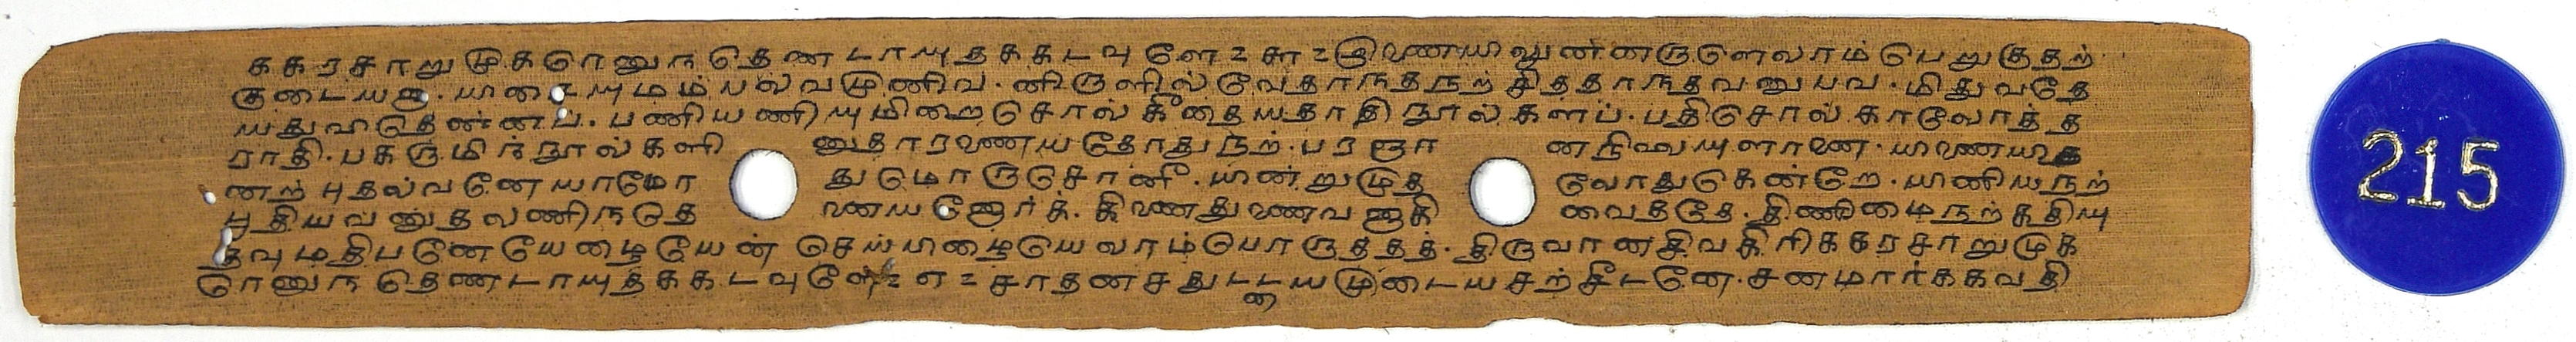 ககரசாறுமுகமானுந தெண டாயுதககடவுளே உ சுா உ இவணையாலுனனருளெலாம் பெறுகுதற்
குடையது. யாடையுமம்பலவமுணிவ. னிருளில் வேதாந்தநற் சித்தாந்தவனுபவ. மிதுவதே
யதுவதென்னப். பணியணியுமிறைசொல் கீதையதாதி நூல்களப். பதிசொல் காலோத்த
ராதி. பகரும்நநூல்களி னுதாரணையதோதுநற். பரஞா னநிலையுளான. யாணையாத
னற் புதல்வனேயாமோ துமொருசொனீ. யான்றுமுத லோதுகென்றே. யாணியநற்
புதியவனுதலணிநதெ ணையனோர்க். கிணைதுணைவனுகி வைத்தே. திணிமைநற்கதியு
தவுமதிபனேயேழையேன் செய்யிழையெலாம்பொருத்தத். திருவானசிவகிரிககரசாறுமுக
மானுந தெணடாயுத்ககடவுளே உ எ உ சாதனசதுட்டயமுடையசற்சீடனே. சனமார்ககவதி
ன
215